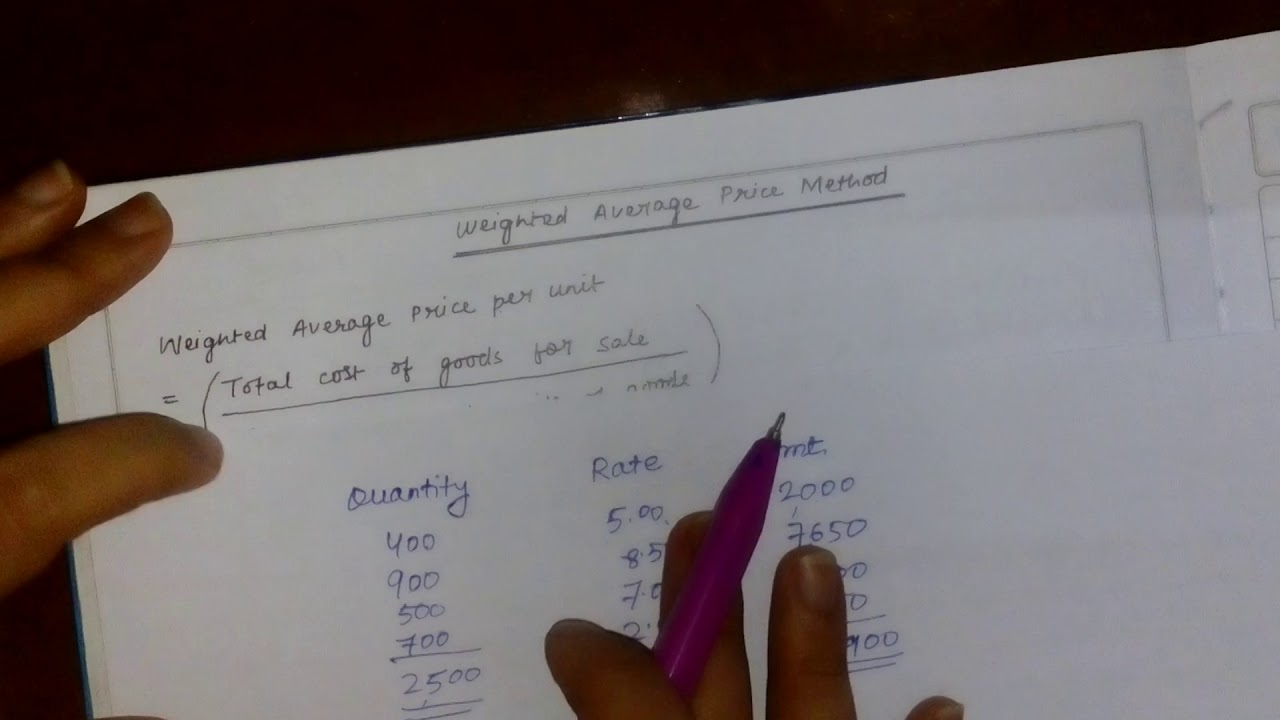 Weighted Average Price Method
Weighted Average Price per unit
= (Total cost of goods for sale)
Quantity Rate
400 5.00 2000
900 8.5 7650
500 7.0
700
2500 900